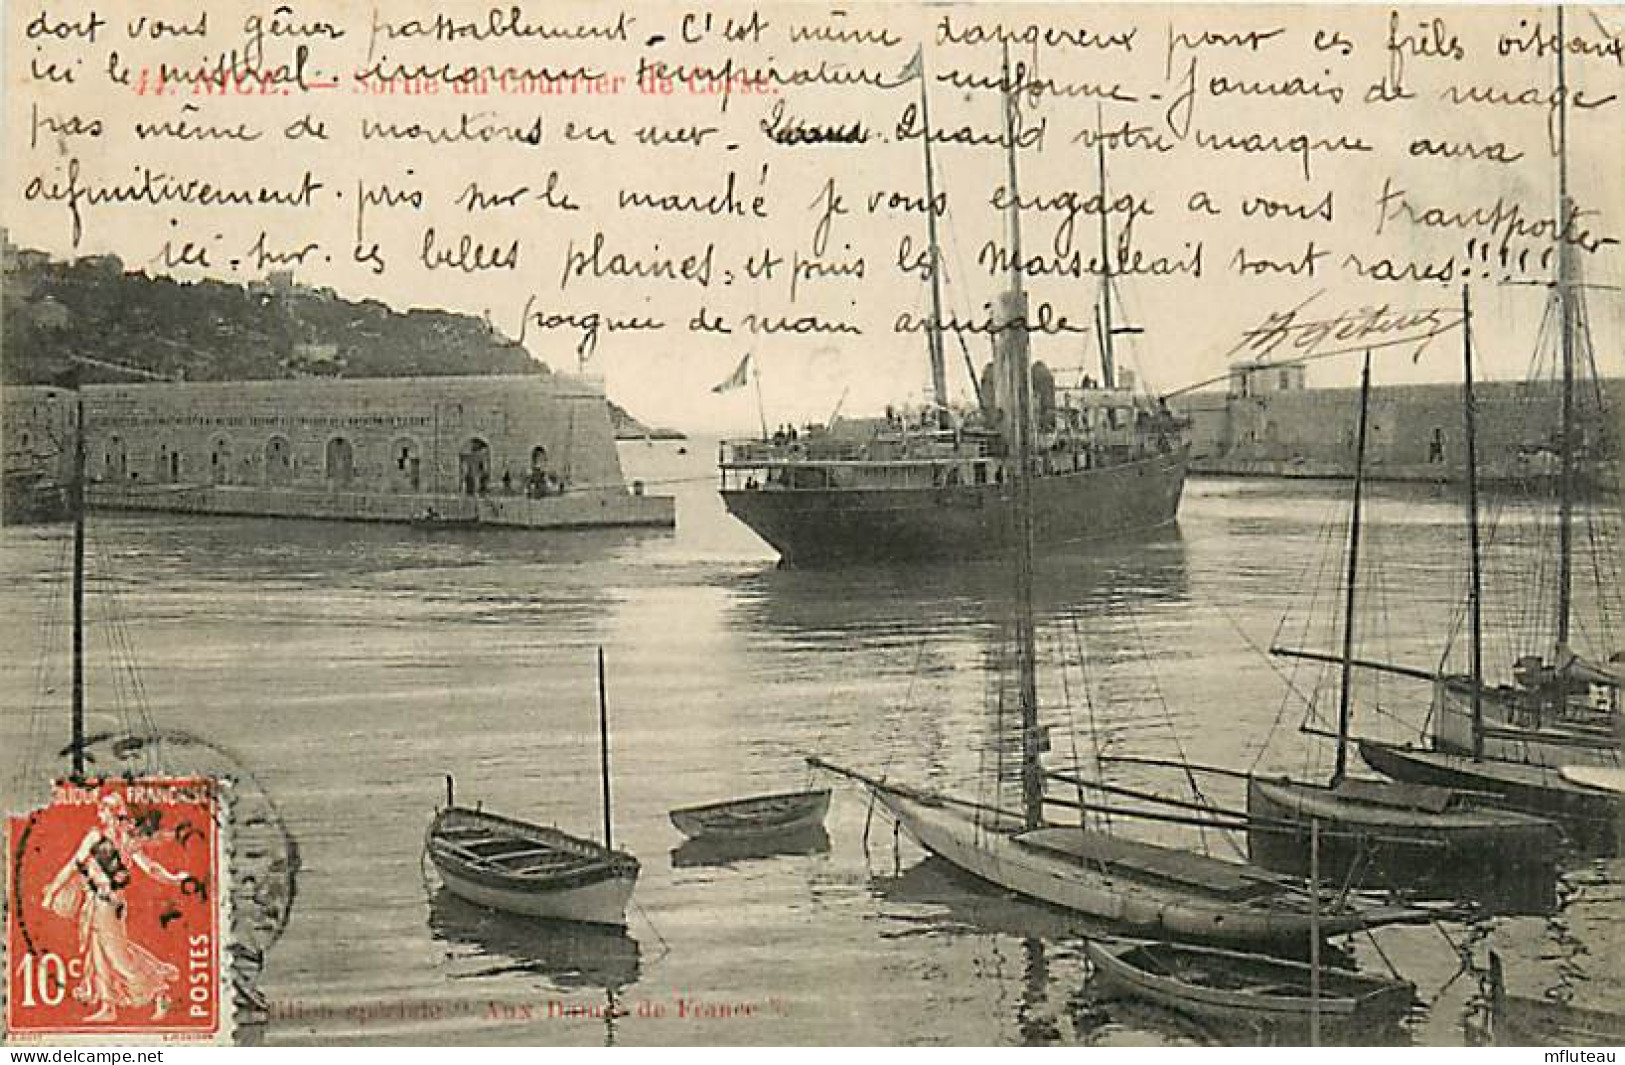 doit vous gêner passablement - C'est même dangereux pour ces frêles oiseaux
ici le mistral. inconnu température uniforme - Jamais de nuage
44. NICE. - Sortie du Courrier de Corse.
pas même de moutons en mer - Quand votre marque aura
définitivement pris sur le marché je vous engage a vous transporter
ici sur ces belles plaines, et puis les Marseillais sont rares!!!!!
poignée de main amicale -
RÉPUBLIQUE FRANÇAISE
10c
POSTES
Edition spéciale "Aux Dames de France".
mfluteau